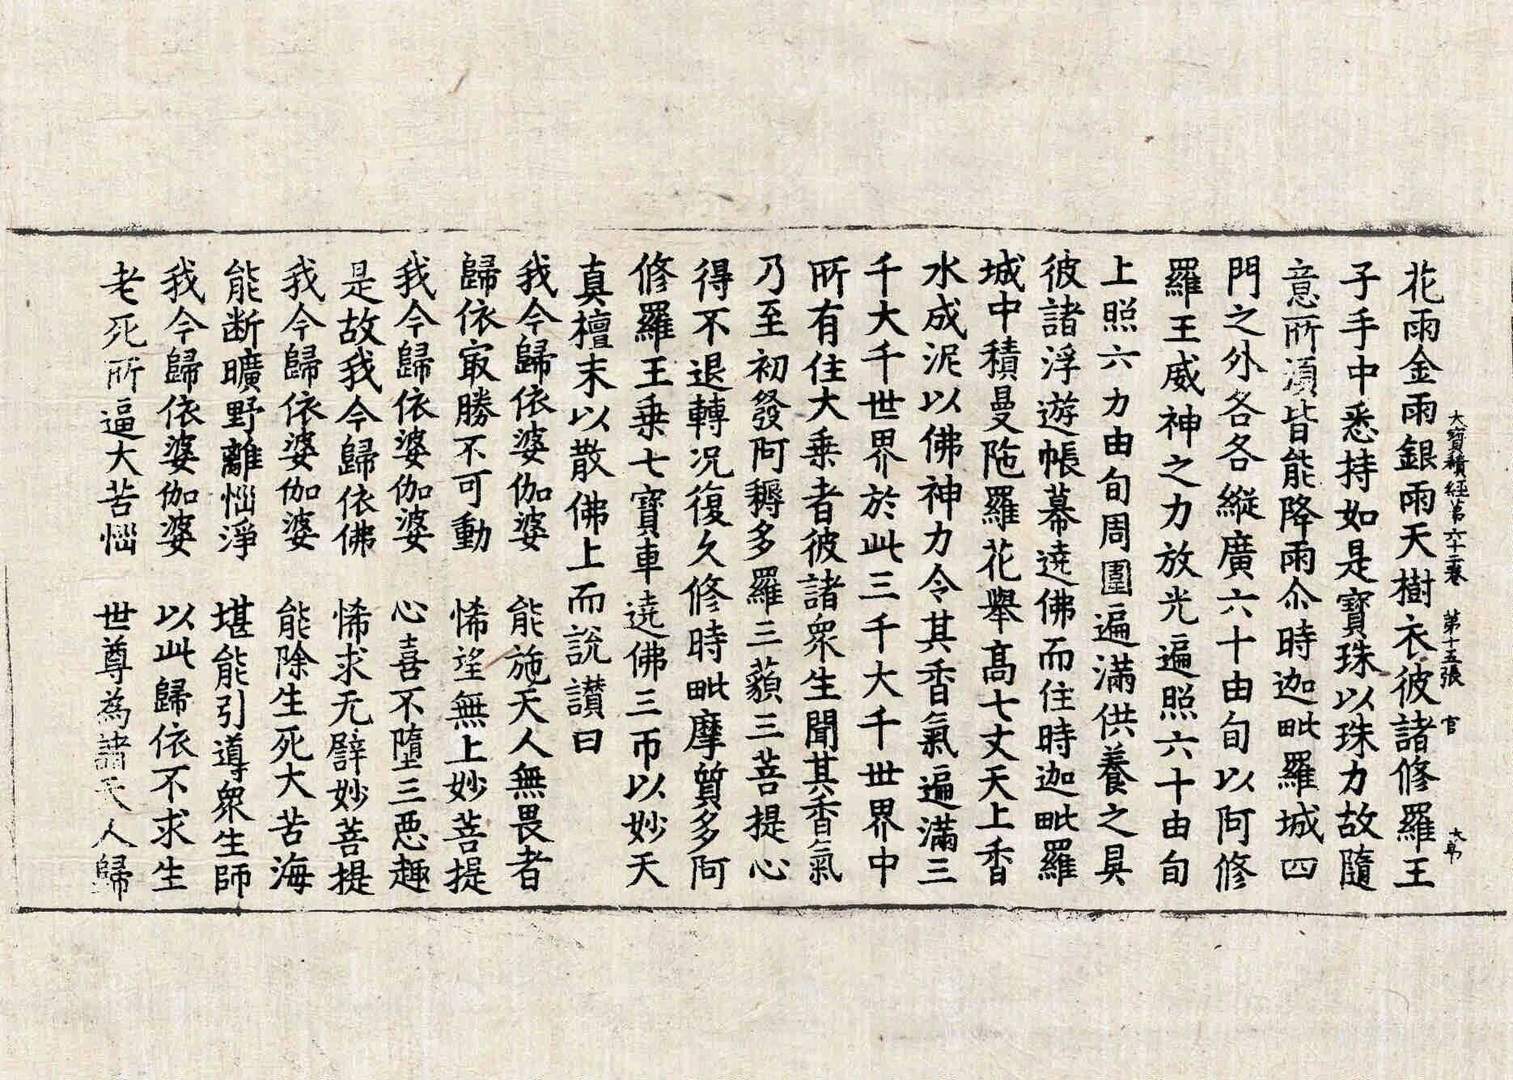 大寶積經第六十二卷　第十五張　官
花雨金雨銀雨天樹衣彼諸修羅王
子手中悉持如是寶珠以珠力故隨
意所須皆能降雨尒時迦毗羅城四
門之外各各縱廣六十由旬以阿修
羅王威神之力放光遍照六十由旬
上照六力由旬周圍遍滿供養之具
彼諸浮遊帳幕遶佛而住時迦毗羅
城中積曼陁羅花舉高七丈天上香
水成泥以佛神力令其香氣遍滿三
千大千世界於此三千大千世界中
所有住大乘者彼諸衆生聞其香氣
乃至初發阿耨多羅三藐三菩提心
得不退轉况復久修時毗摩質多阿
修羅王乗七寶車遶佛三帀以妙天
真檀末以散佛上而說讃曰
我今歸依婆伽婆　能施天人無畏者
歸依冣勝不可動　悕望無上妙菩提
我今歸依婆伽婆　心喜不墮三惡趣
是故我今歸依佛　悕求无譬妙菩提
我今歸依婆伽婆　能除生死大苦海
能断曠野離惱淨　堪能引導衆生師
我今歸依婆伽婆　以此歸依不求生
老死所逼大苦惱　世尊為諸天人歸